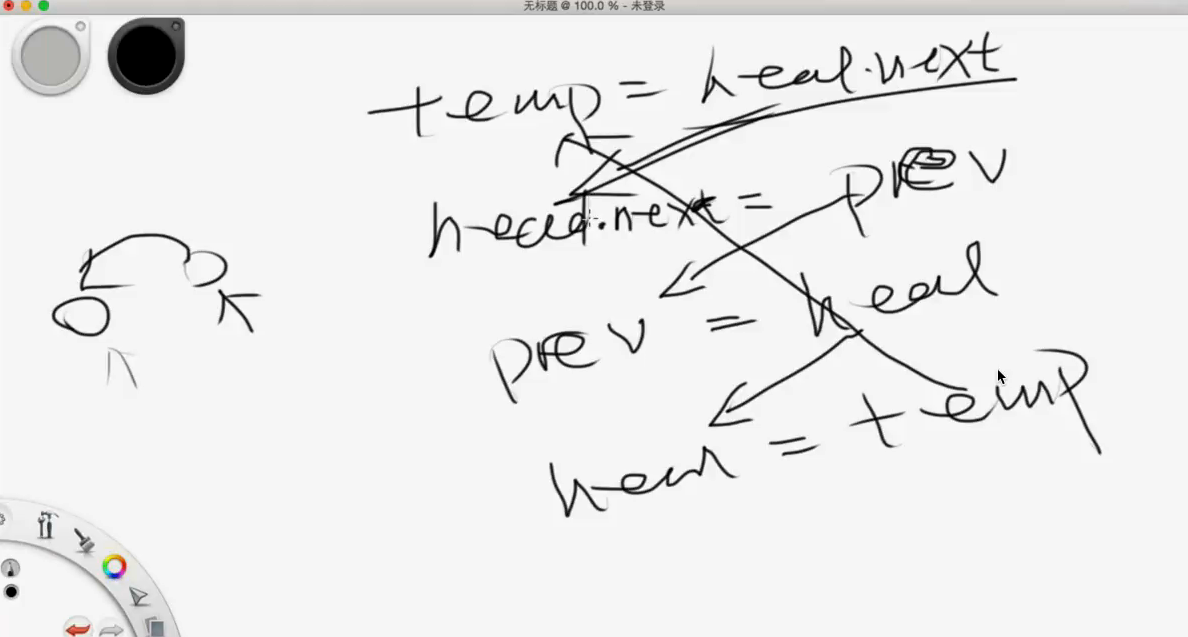 无标题 @ 100.0 % - 未登录
temp = head.next
head.next = prev
prev = head
head = temp